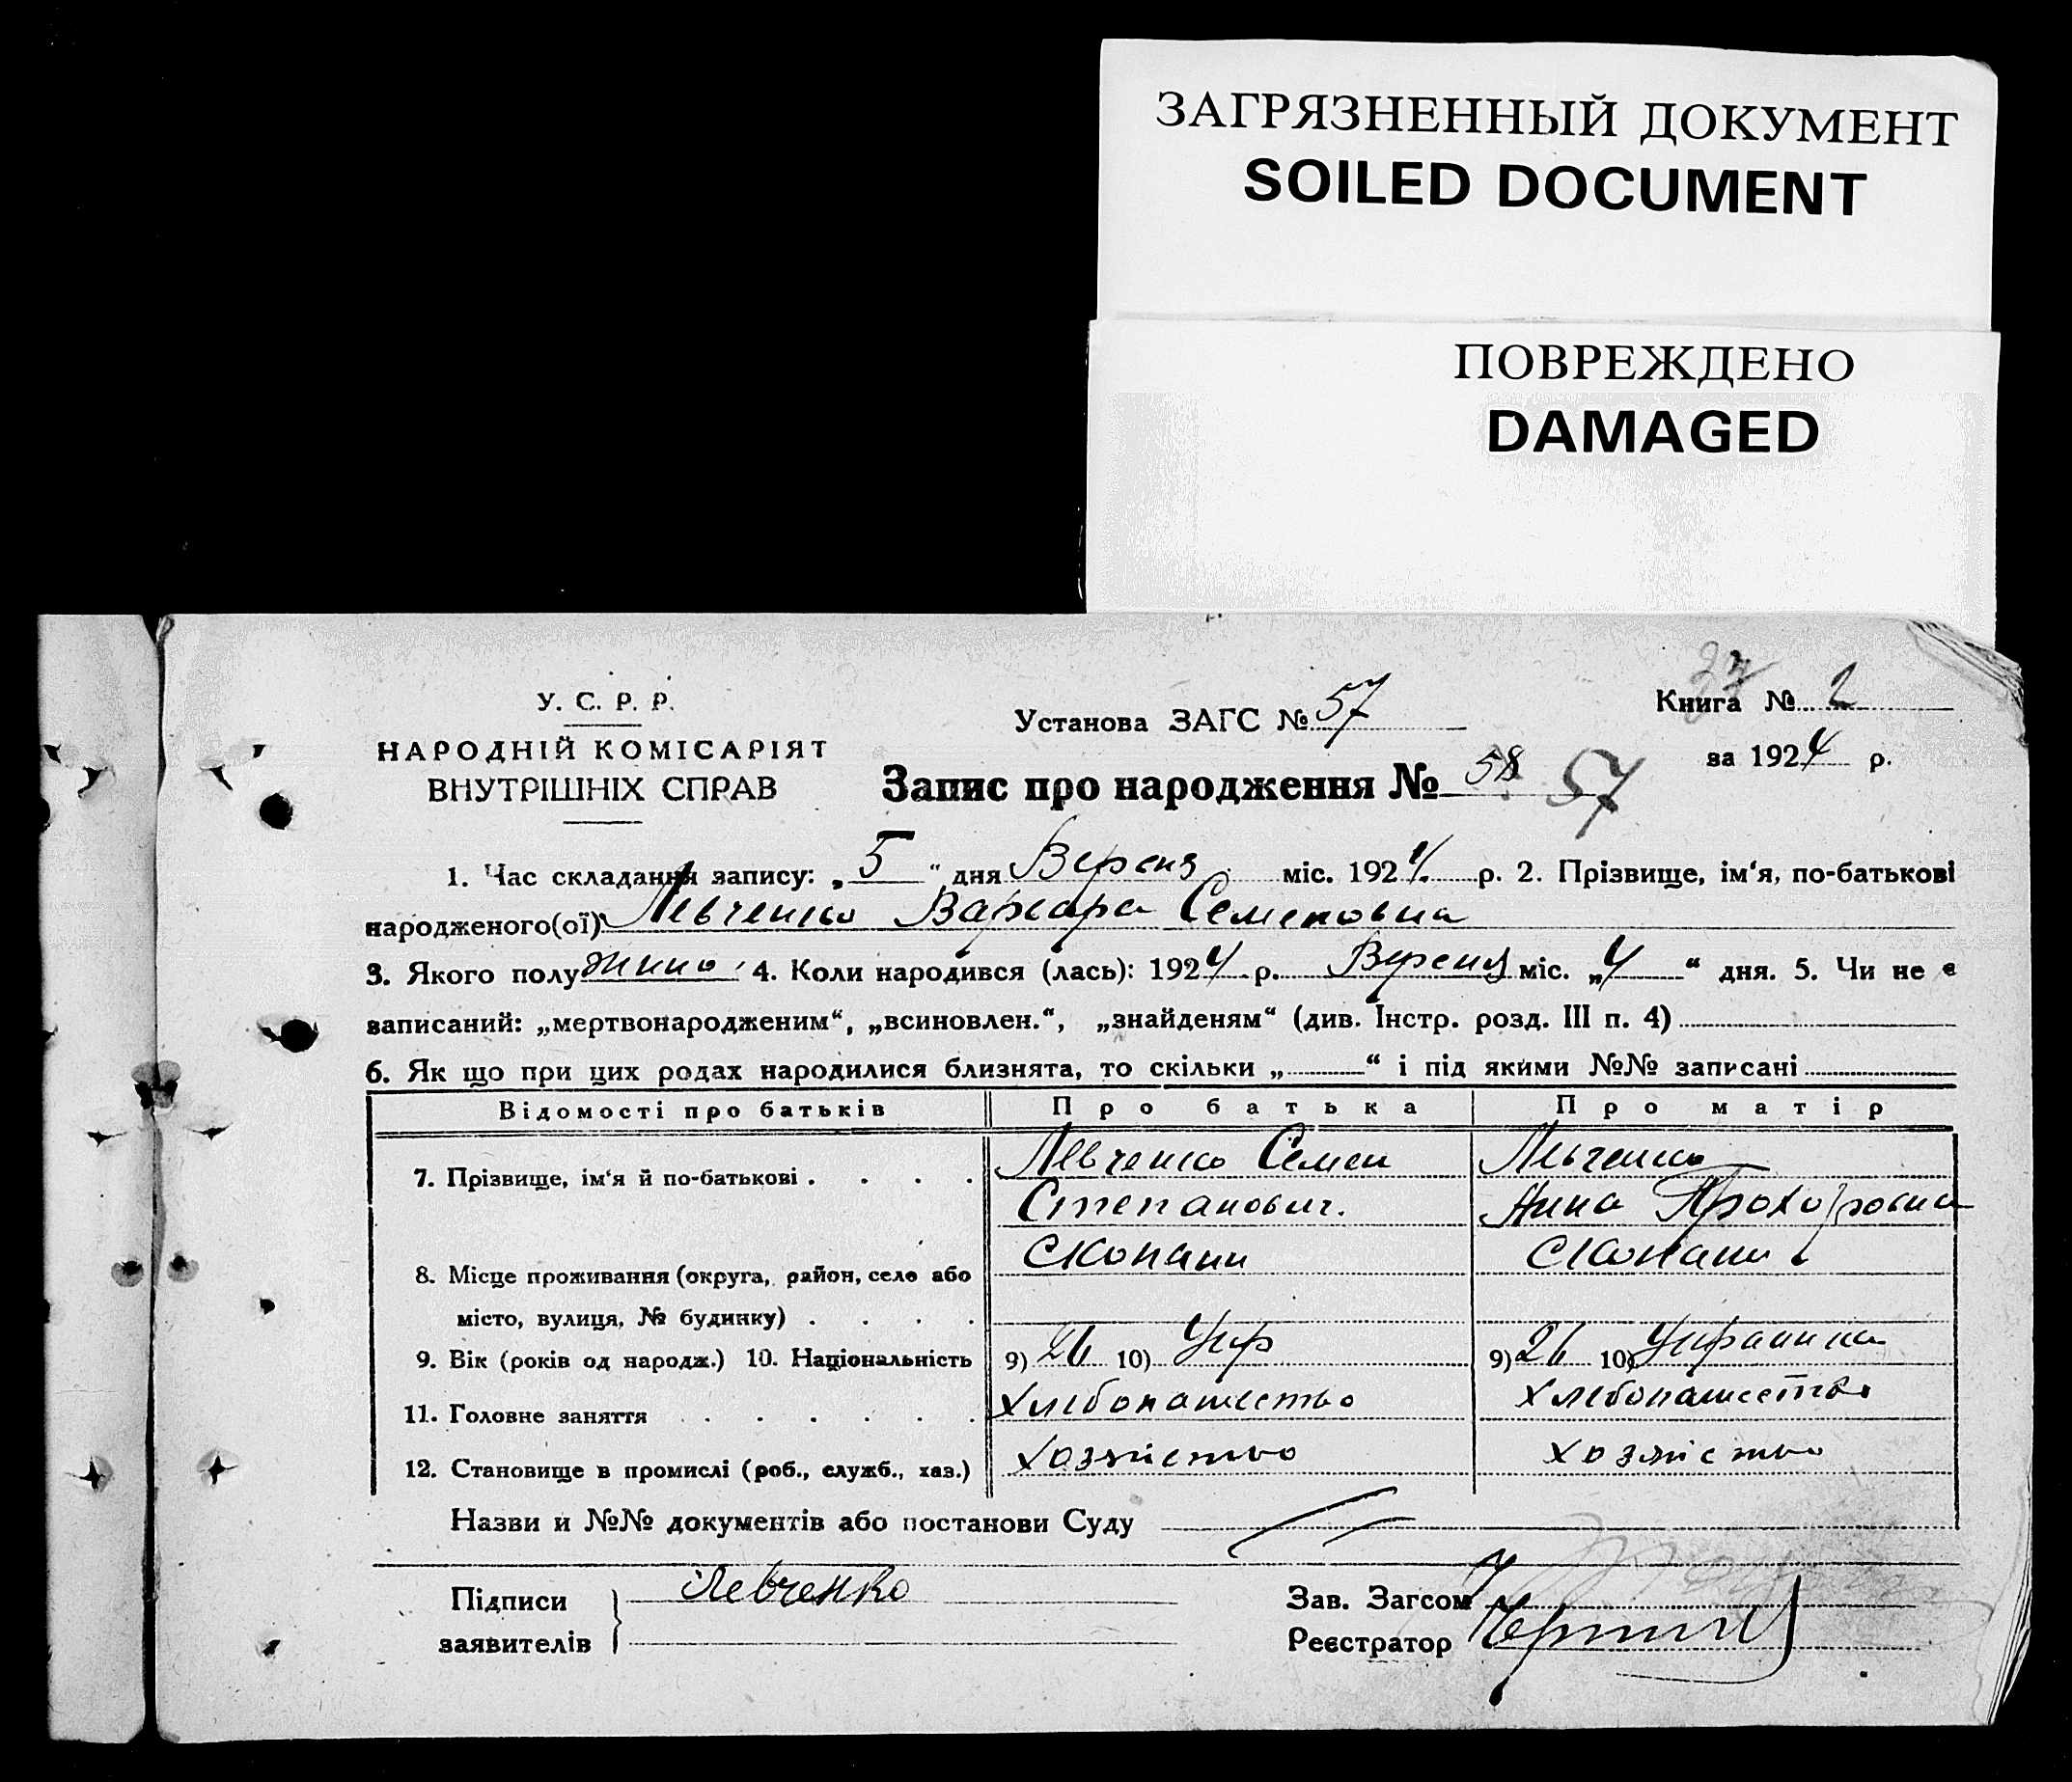 ЗАГРЯЗНЕННЫЙ ДОКУМЕНТ
SOILED DOCUMENT
ПОВРЕЖДЕНО
DAMAGED
37
У. С. Р. Р.
НАРОДНІЙ КОМІСАРІЯТ
ВНУТРІШНІХ СПРАВ
Установа ЗАГС № 57
Книга № 2
за 1924 р.
Запис про народження № 58 57
1. Час складання запису: „5“ дня Версня міс. 1924 р. 2. Прізвище, ім‘я, по-батькові
народженого(ої) Левченко Варвара Семеновна
3. Якого полу жино 4. Коли народився (лась): 1924 р. Верення міс. „4“ дня. 5. Чи не є
записаний: „мертвонародженим“, „всиновлен.“, „знайденям“ (див. Інстр. розд. III п. 4)
6. Як що при цих родах народилися близнята, то скільки „ “ і під якими №№ записані
Відомості про батьків Про батька Про матір
7. Прізвище, ім‘я й по-батькові Левченко Семен Левченко
Степанович. Анна Прохоровна
8. Місце проживання (округа, район, село або Скопани Скопани
місто, вулиця, № будинку)
9. Вік (років од народж.) 10. Національність 9) 26 10) Укр 9) 26 10) Украинка
11. Головне заняття Хлебопашество Хлебопашество
12. Становище в промислі (роб., служб., хаз.) Хозяіство Хозяіство
Назви й №№ документів або постанови Суду
Підписи заявителів Левченко
Зав. Загсом
Реєстратор